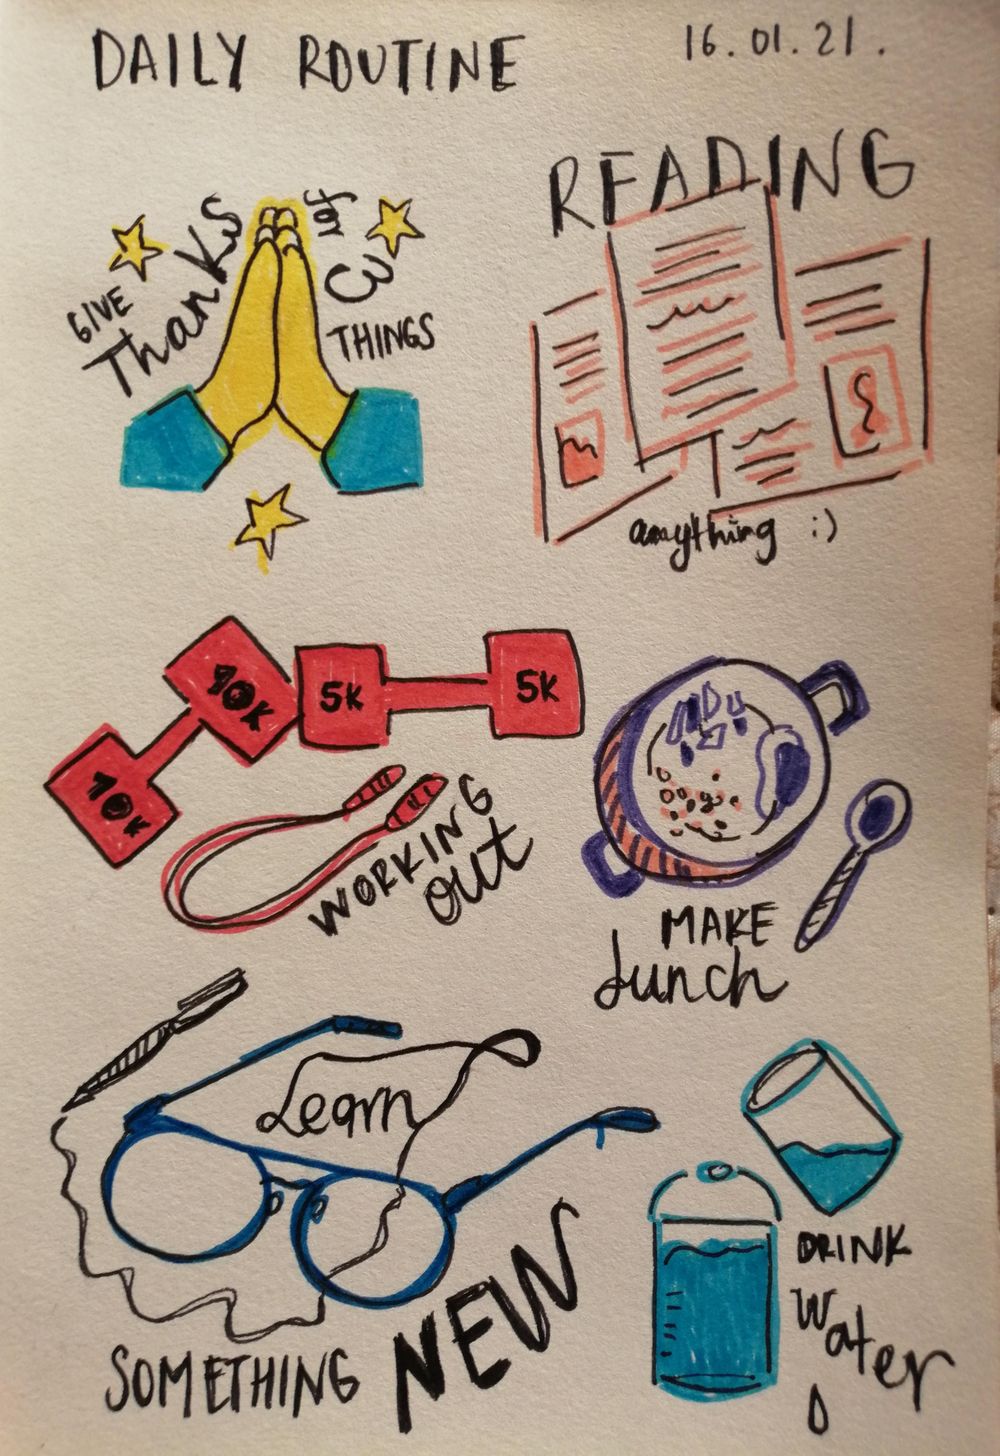 DAILY ROUTINE
16.01.21.
GIVE
Thanks
for
3
THINGS
READING
anything :)
10K
10K
5K
5K
WORKING
out
MAKE
Lunch
Learn
SOMETHING
NEW
DRINK
Water